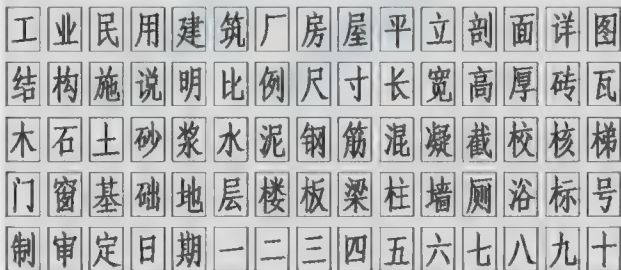 工业民用建筑厂房屋平立剖面详图
结构施说明比例尺寸长宽高厚砖瓦
木石土砂浆水泥钢筋混凝截校核梯
门窗基础地层楼板梁柱墙厕浴标号
制审定日期一二三四五六七八九十